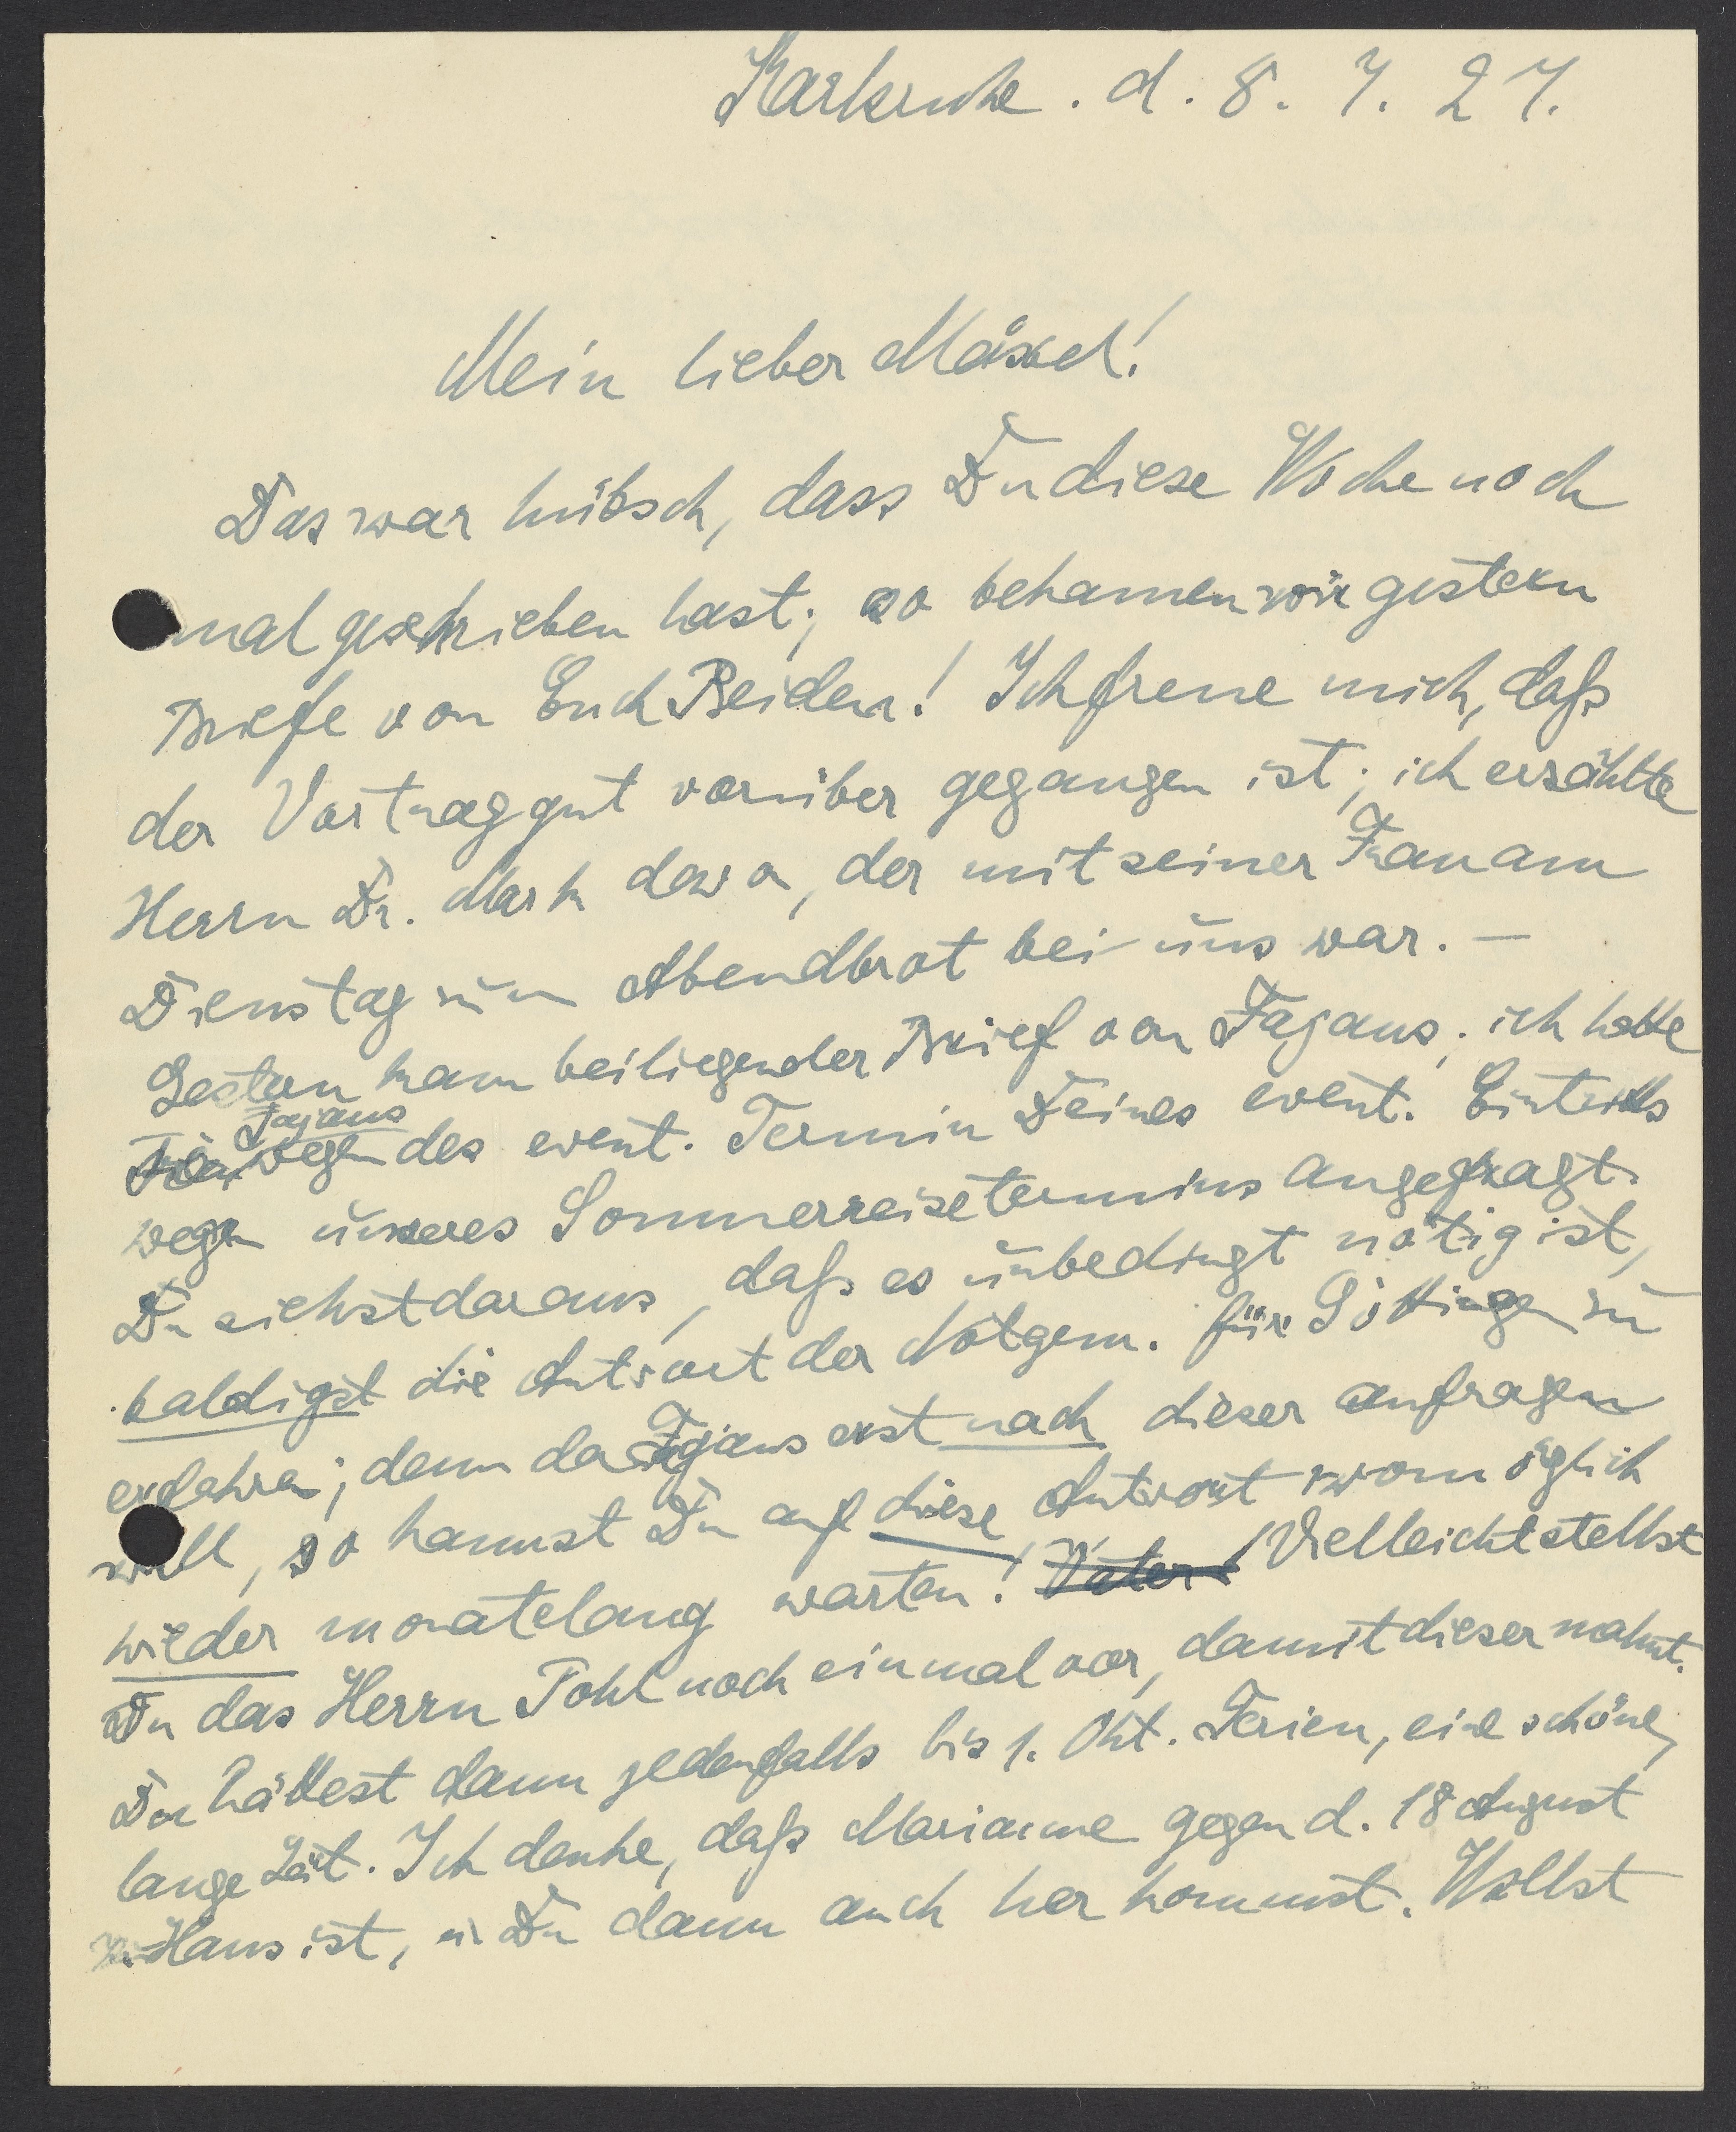 Karlsruhe. d. 8. 7. 27.
Mein lieber Mäxel!
Das war hübsch, dass Du diese Woche noch
mal geschrieben hast; so bekamen wir gestern
Briefe von Euch Beiden! Ich freue mich, daß
der Vortrag gut vorüber gegangen ist; ich erzählte
Herrn Dr. Mark davon, der mit seiner Frau am
Dienstag zum Abendbrot bei uns war. —
Gestern kam beiliegender Brief von Fajans; ich hatte
Fajans
wegen des event. Termin Deines event. Eintritts
wegen unseres Sommerreisetermins angefragt.
Du siehst daraus, daß es unbedingt nötig ist,
baldigst die Antwort der Notgem. für Göttingen zu
erfahren; denn da Fajans erst nach dieser anfragen
will, so kannst Du auf diese Antwort womöglich
wieder monatelang warten! Vater Vielleicht stellst
Du das Herrn Pohl noch einmal vor, damit dieser mahnt.
Du hättest dann jedenfalls bis 1. Okt. Ferien, eine schöne,
lange Zeit. Ich denke, daß Marianne gegen d. 18 August
zu Haus ist, u. Du dann auch her kommst. Wollst